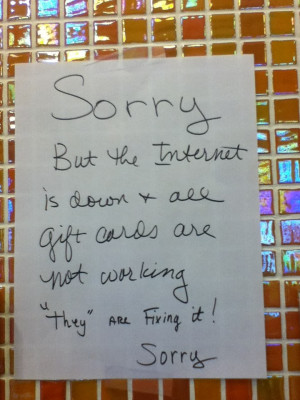 Sorry
But the Internet
is down + all
gift cards are
not working
"They" ARE Fixing it!
Sorry